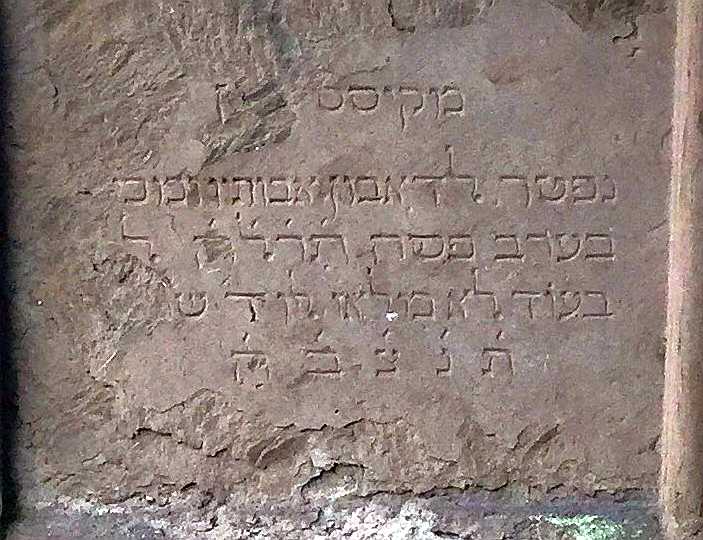 מקיסס
נפטר לד אבמון אבותינו
בערב פסח תרל״ק ל
בעוד לא מלאו לו יד ש
ת נ צ ב ה